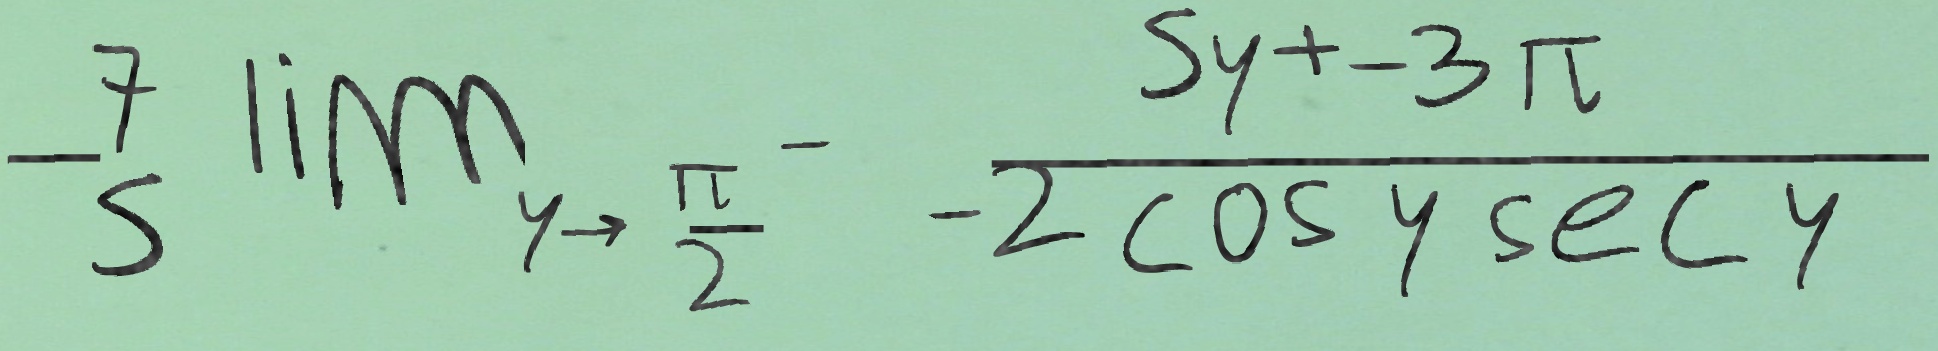 -\frac{7}{5} \lim_{y \to \frac{\pi}{2}^-} \frac{5y+-3\pi}{-2\cos y \sec y}